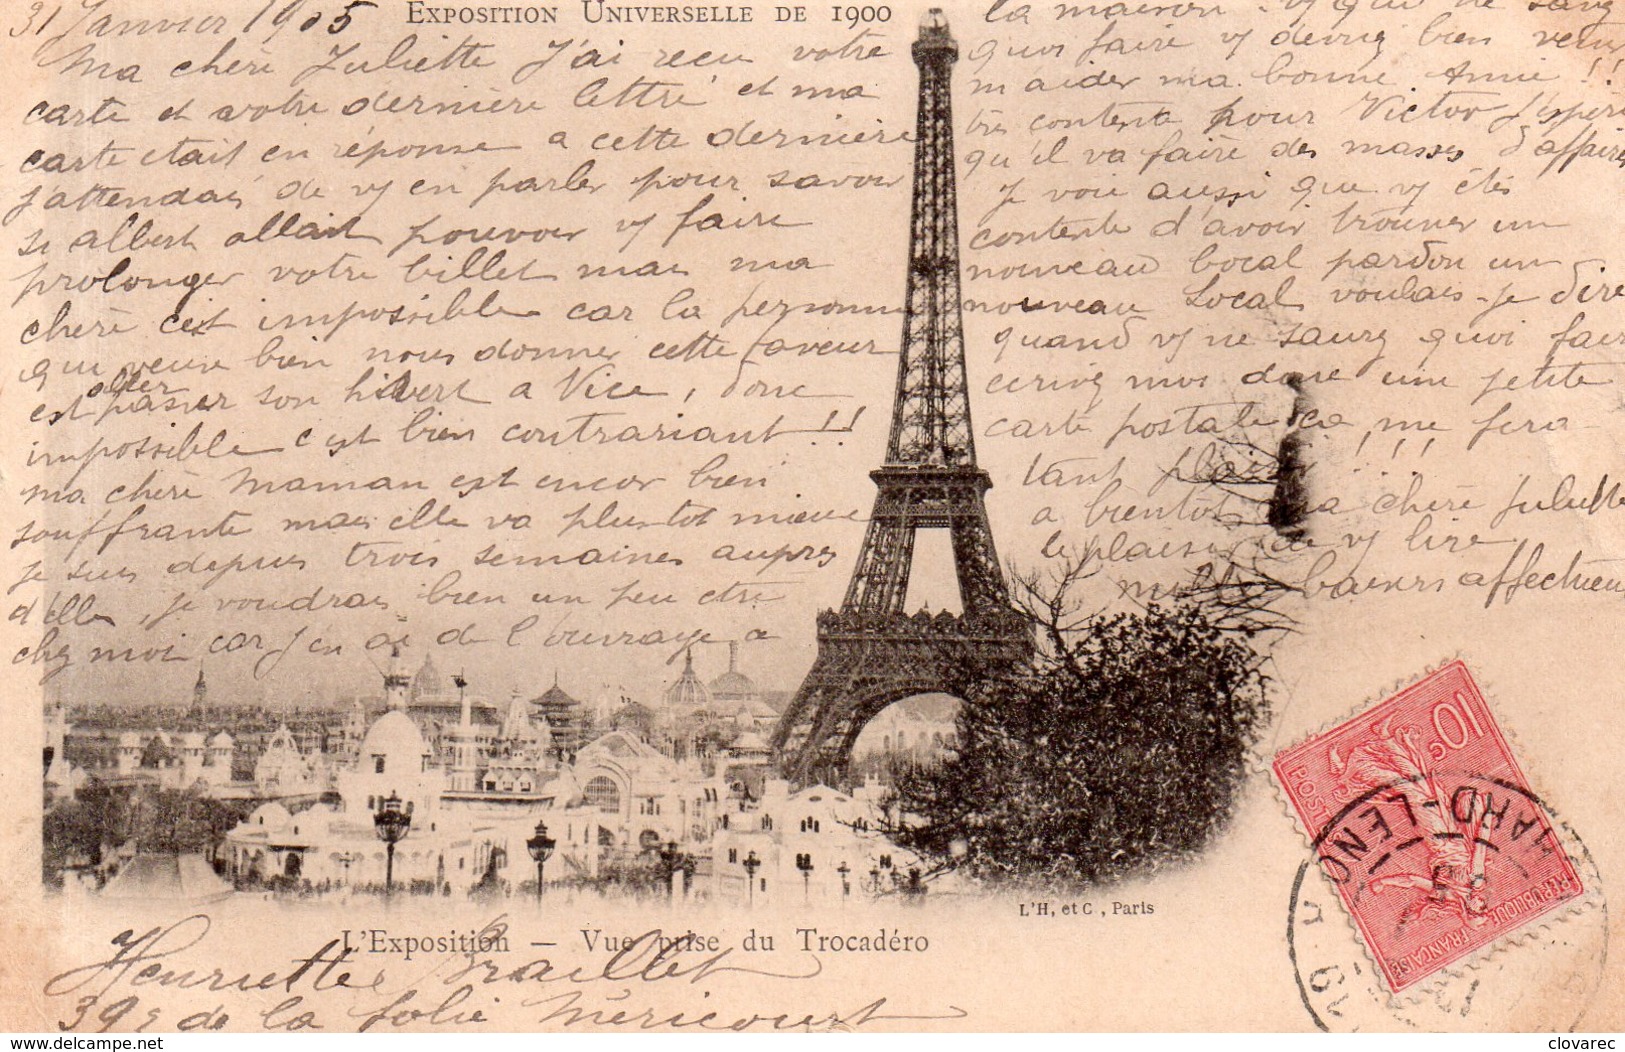 31 Janvier 1905
EXPOSITION UNIVERSELLE DE 1900
Ma chère Juliette J'ai recu votre
carte et votre dernière lettre et ma
carte etait en réponse a cette dernière
j'attendais de vs en parler pour savoir
si albert allait pouvoir vs faire
prolonger votre billet mais ma
chere c'est impossible car la personne
qui veux bien nous donner cette faveur
est aller passer son hivert a Nice, donc
impossible c'est bien contrariant !!
ma chère Maman est encor bien
souffrante mais elle va plus tot mieux
je suis depuis trois semaines aupres
d'elle, je voudrais bien un peu etre
chez moi car j'en ai de l'ouvrage a
la maison. si vs ne savez
quoi faire vs devriez bien venir
m aider ma bonne Amie !!
très contente pour Victor J'espère
qu'il va faire des masses d'affaires
Je voie aussi que vs étés
contente d'avoir trouver un
nouveau bocal pardon un
nouveau Local voulais-je dire
quand vs ne saurez quoi faire
ecrivez moi donc une petite
carte postale ca me fera
tant plaisir !!!
a bientôt ma chère Juliette
le plaisir de vs lire
mille baisers affectueux
10c
POSTES
REPUBLIQUE
FRANÇAISE
L'H, et C, Paris
L'EXPOSITION — VUE PRISE DU TROCADÉRO
Henriette Braillet
39 r de la folie Méricourt
delcampe.net
clovarec